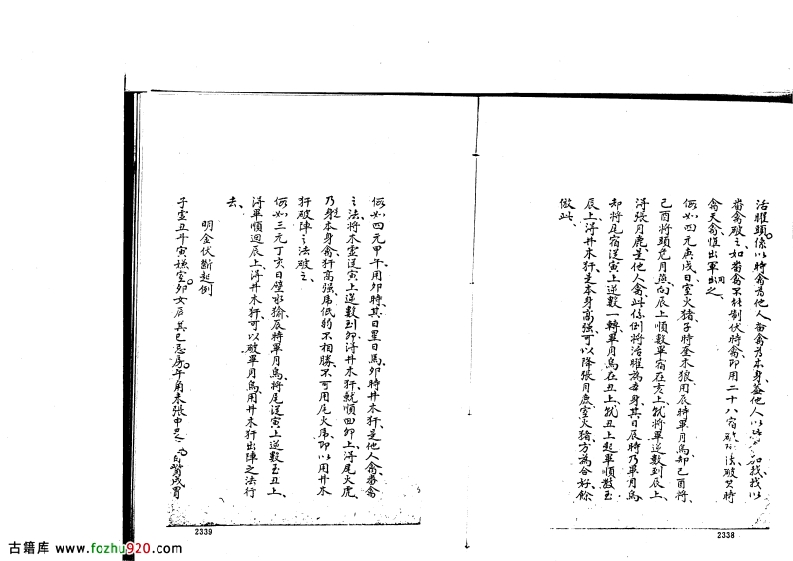 活曜頭係以時禽為他人畨禽為本身盖他人以此加我我以
畨禽破之如畨禽不能制伏時禽即用二十八宿破陣法破其時
禽天禽慎出軍用之
假如四元庚戌日室火猪子時奎木狼用辰時畢月烏却己酉將
己酉將頭危月燕向辰上順數畢宿在亥上就將畢逆數到辰上
得張月鹿是他人禽此係倒將活曜為身其日辰時乃畢月烏
却將尾宿送寅上逆數一轉畢月烏在丑上就丑上起畢順數至
辰上得井木犴是本身高強可以降張月鹿室火猪方為合好餘
倣此
假如四元甲午用卯時其日星日馬卯時井木犴是他人禽畨禽
之法將木虛送寅上逆數到卯得井木犴就順回卯上得尾火虎
乃身本身禽犴高強馬低豹不相勝不可用尾火虎即以用井木
犴破陣之法破之
假如三元丁亥日壁水㺄辰時畢月烏將尾送寅上逆數至丑上
得畢順迴辰上得井木犴可以破畢月烏用井木犴出陣之法行
去
明金伏斷起例
子虛丑斗寅嫌室卯女辰箕巳忌房午角未張申 酉觜戌胃
2339
2338
古籍库 www.fozhu920.com